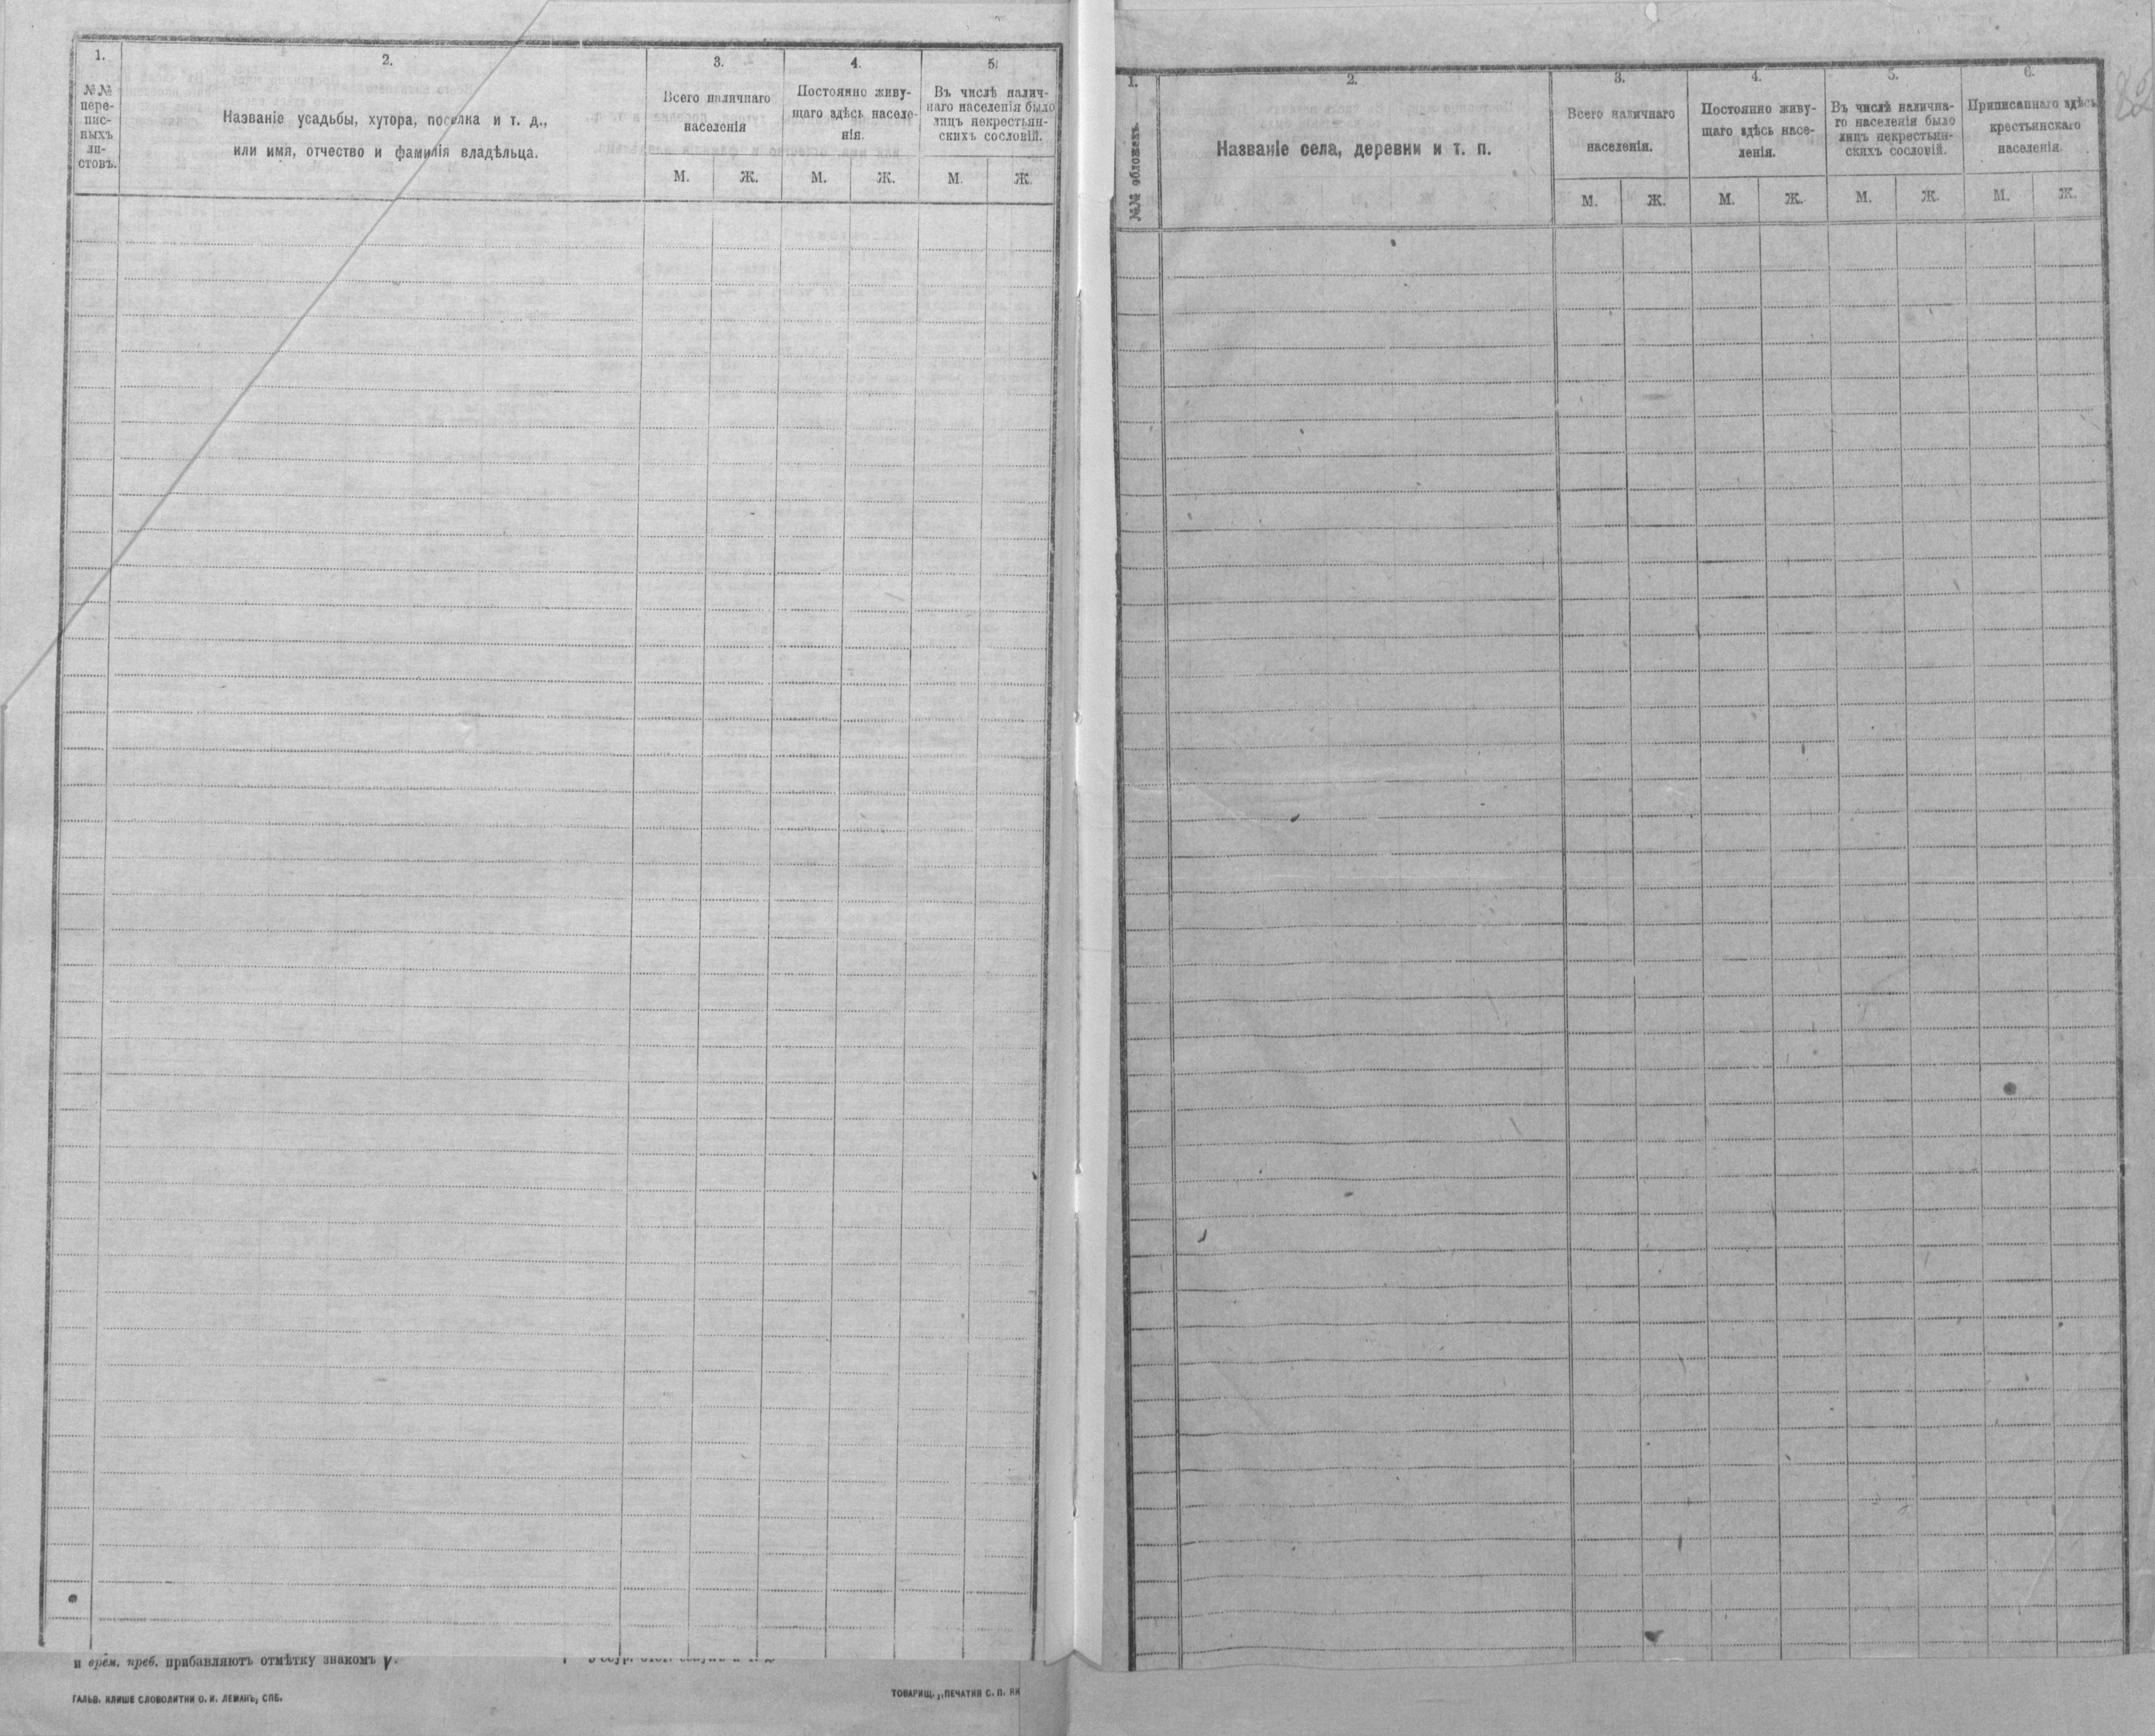 1.
№№
пере-
пис-
ныхъ
ли-
стовъ.
2.
Названіе усадьбы, хутора, поселка и т. д.,
или имя, отчество и фамилія владѣльца.
3.
Всего наличнаго
населенія
М. Ж.
4.
Постоянно живу-
щаго здѣсь населе-
нія.
М. Ж.
5.
Въ числѣ налич-
наго населенія было
лицъ некрестьян-
скихъ сословій.
М. Ж.
и врем. преб. прибавляютъ отмѣтку знакомъ
ГАЛЬВ. КЛИШЕ СЛОВОЛИТНИ О. И. ЛЕМАНЪ, СПБ.
ТОВАРИЩ. „ПЕЧАТНЯ С. П.
1.
№№ обложекъ.
2.
Названіе села, деревни и т. п.
3.
Всего наличнаго
населенія.
М. Ж.
4.
Постоянно живу-
щаго здѣсь насе-
ленія.
М. Ж.
5.
Въ числѣ налична-
го населенія было
лицъ некрестьян-
скихъ сословій.
М. Ж.
6.
Приписаннаго здѣсь
крестьянскаго
населенія.
М. Ж.